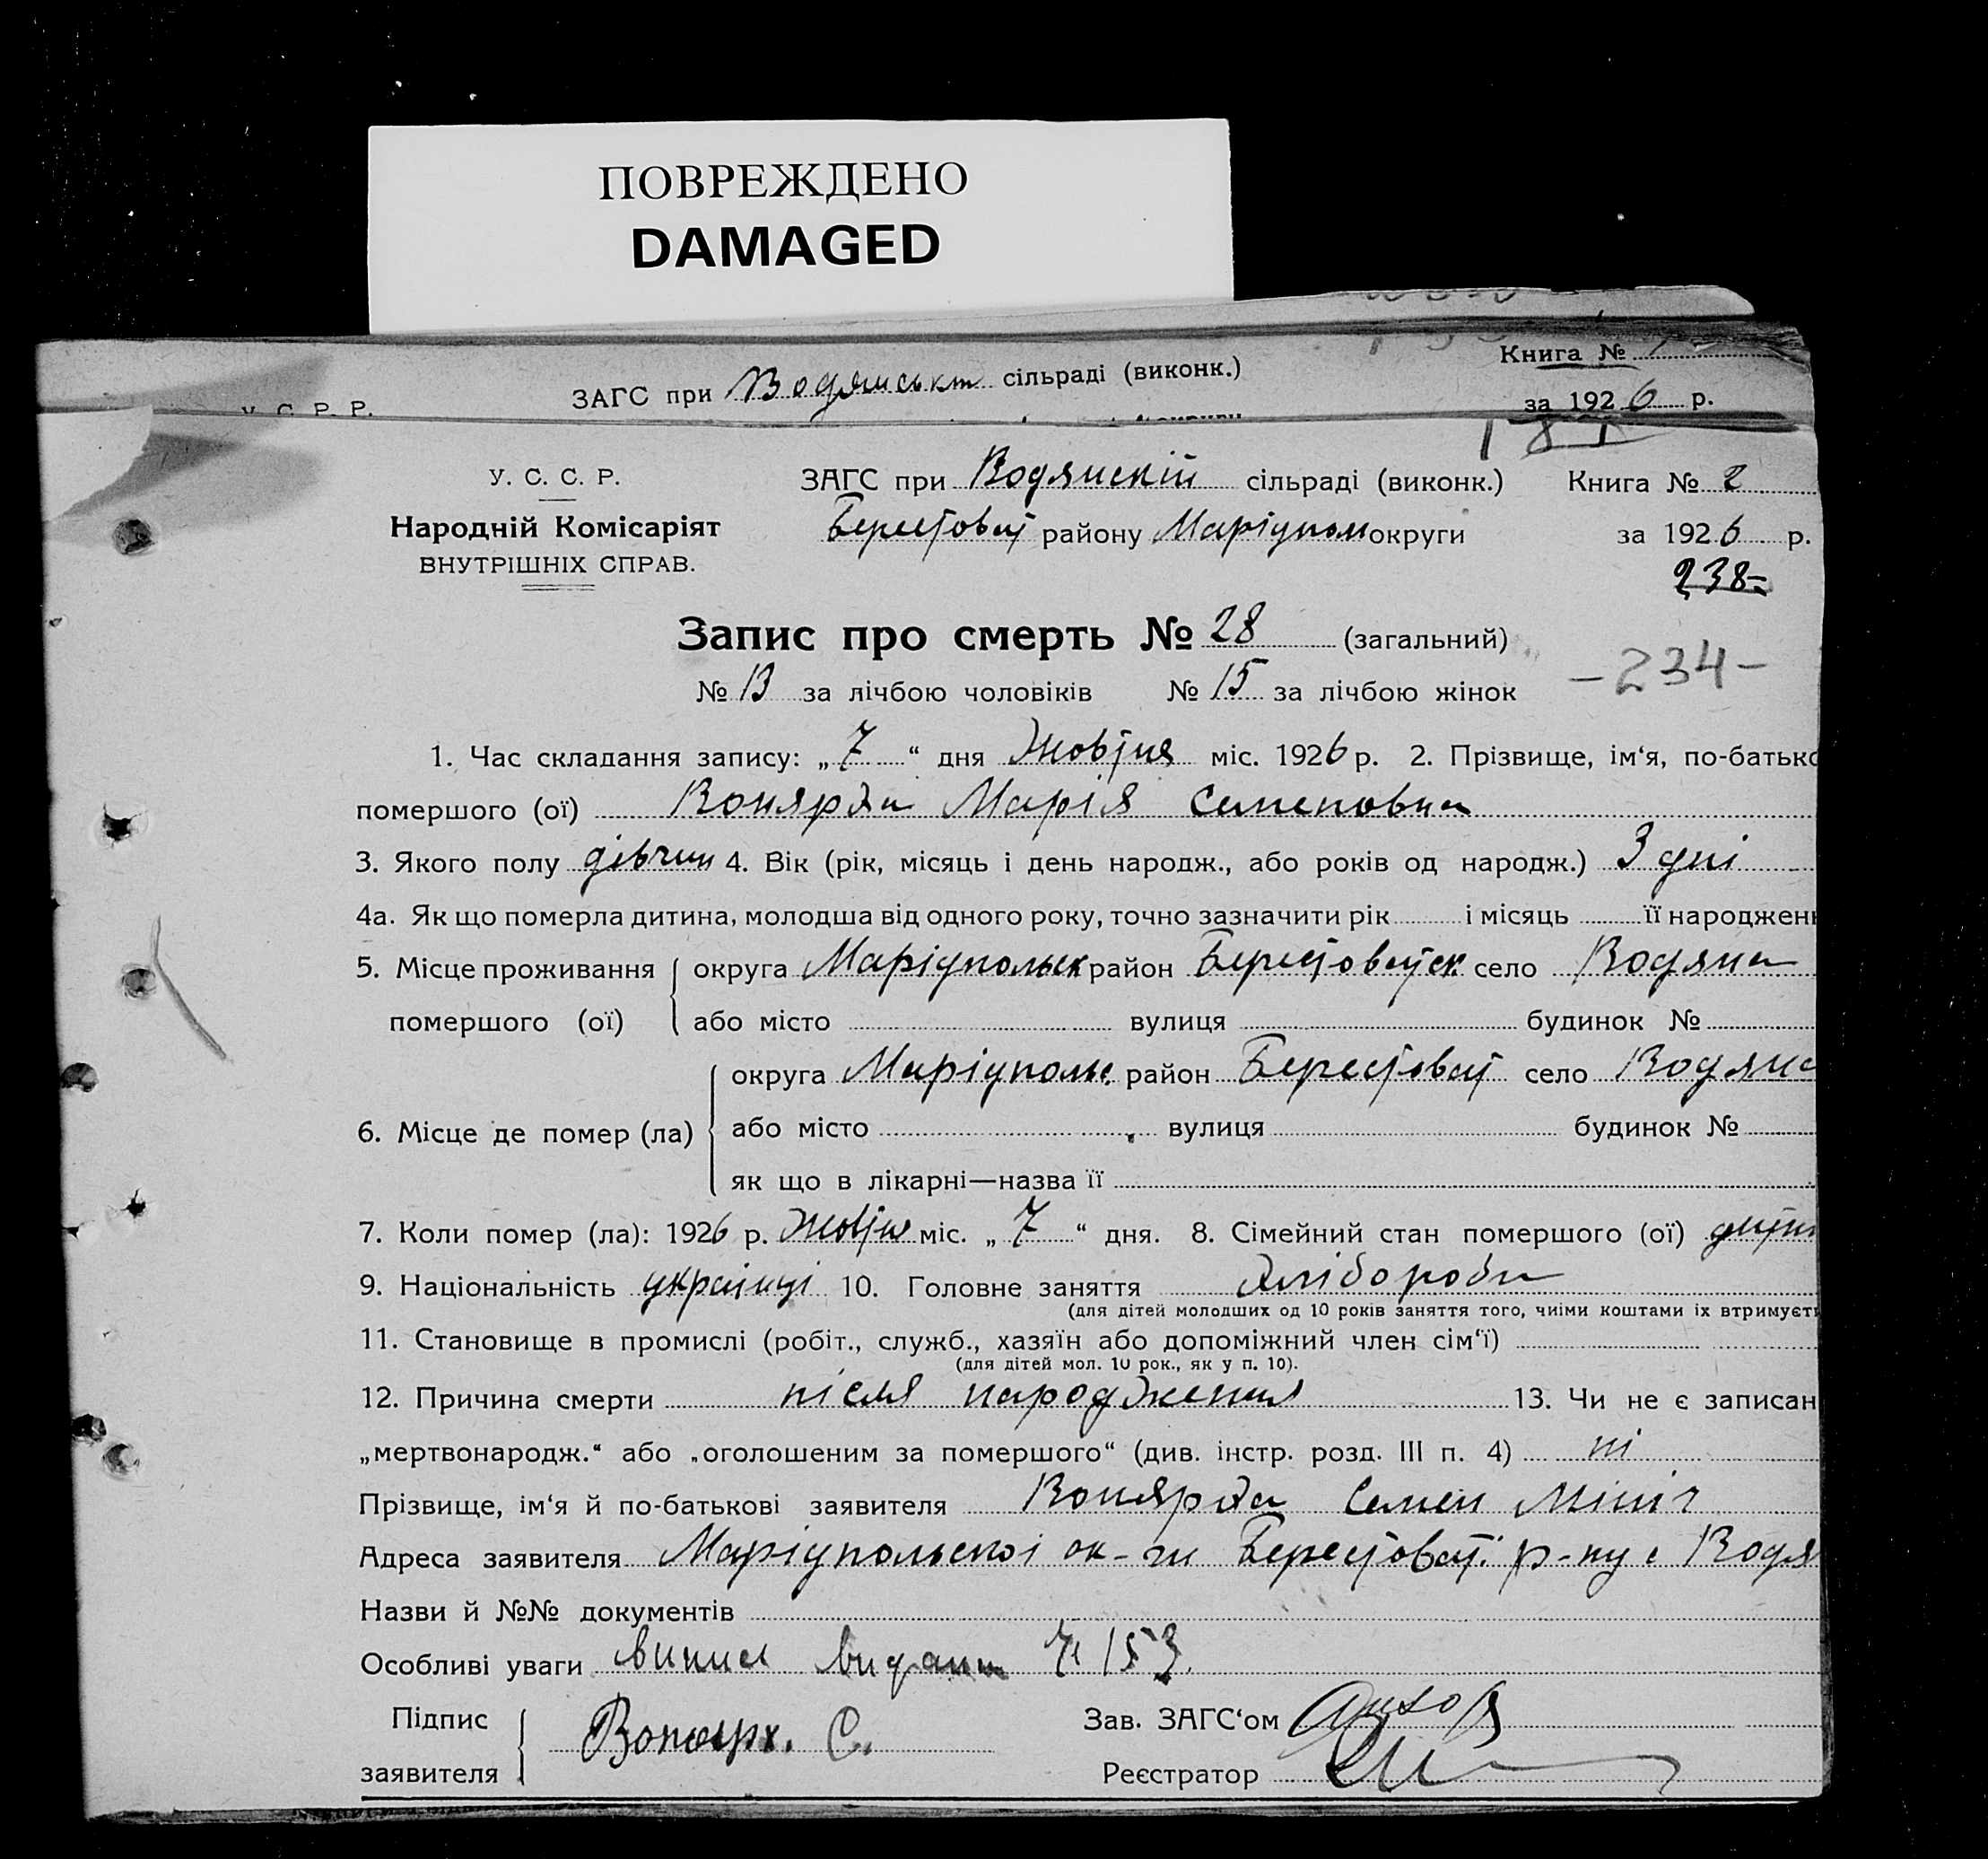 ПОВРЕЖДЕНО
DAMAGED
ЗАГС при Водянськ сільраді (виконк.) Книга №
У. С. Р. Р. за 1926 р.
У. С. С. Р. ЗАГС при Водянскій сільраді (виконк.) Книга № 2
Народній Комісаріят Берестоват району Маріупол округи за 1926 р.
ВНУТРІШНІХ СПРАВ.
238-
Запис про смерть № 28 (загальний)
-234-
№ 13 за лічбою чоловіків № 15 за лічбою жінок
1. Час складання запису: „7“ дня Жовтня міс. 1926 р. 2. Прізвище, ім‘я, по-батько
помершого (ої) Вонярха Марія Семеновна
3. Якого полу дівчин 4. Вік (рік, місяць і день народж., або років од народж.) 3 дні
4а. Як що померла дитина, молодша від одного року, точно зазначити рік і місяць її народжен
5. Місце проживання округа Маріупольск район Берестоватск село Водяна
помершого (ої) або місто вулиця будинок №
округа Маріупольс район Берестоват село Водяна
6. Місце де помер (ла) або місто вулиця будинок №
як що в лікарні—назва її
7. Коли помер (ла): 1926 р. Жовтня міс. „7“ дня. 8. Сімейний стан помершого (ої) дитин
9. Національність українці 10. Головне заняття Хлібороби
(для дітей молодших од 10 років заняття того, чиїми коштами їх втримуєть
11. Становище в промислі (робіт., служб., хазяїн або допоміжний член сім‘ї)
(для дітей мол. 10 рок., як у п. 10).
12. Причина смерти після народження 13. Чи не є записан
„мертвонародж.“ або „оголошеним за помершого“ (див. інстр. розд. III п. 4) ні
Прізвище, ім‘я й по-батькові заявителя Вонярха Семен
Адреса заявителя Маріупольскоі ок-ги Берестоват. р-ну с Водя
Назви й №№ документів
Особливі уваги випис видан № 153.
Підпис Вонярх. С. Зав. ЗАГС‘ом
заявителя Реєстратор